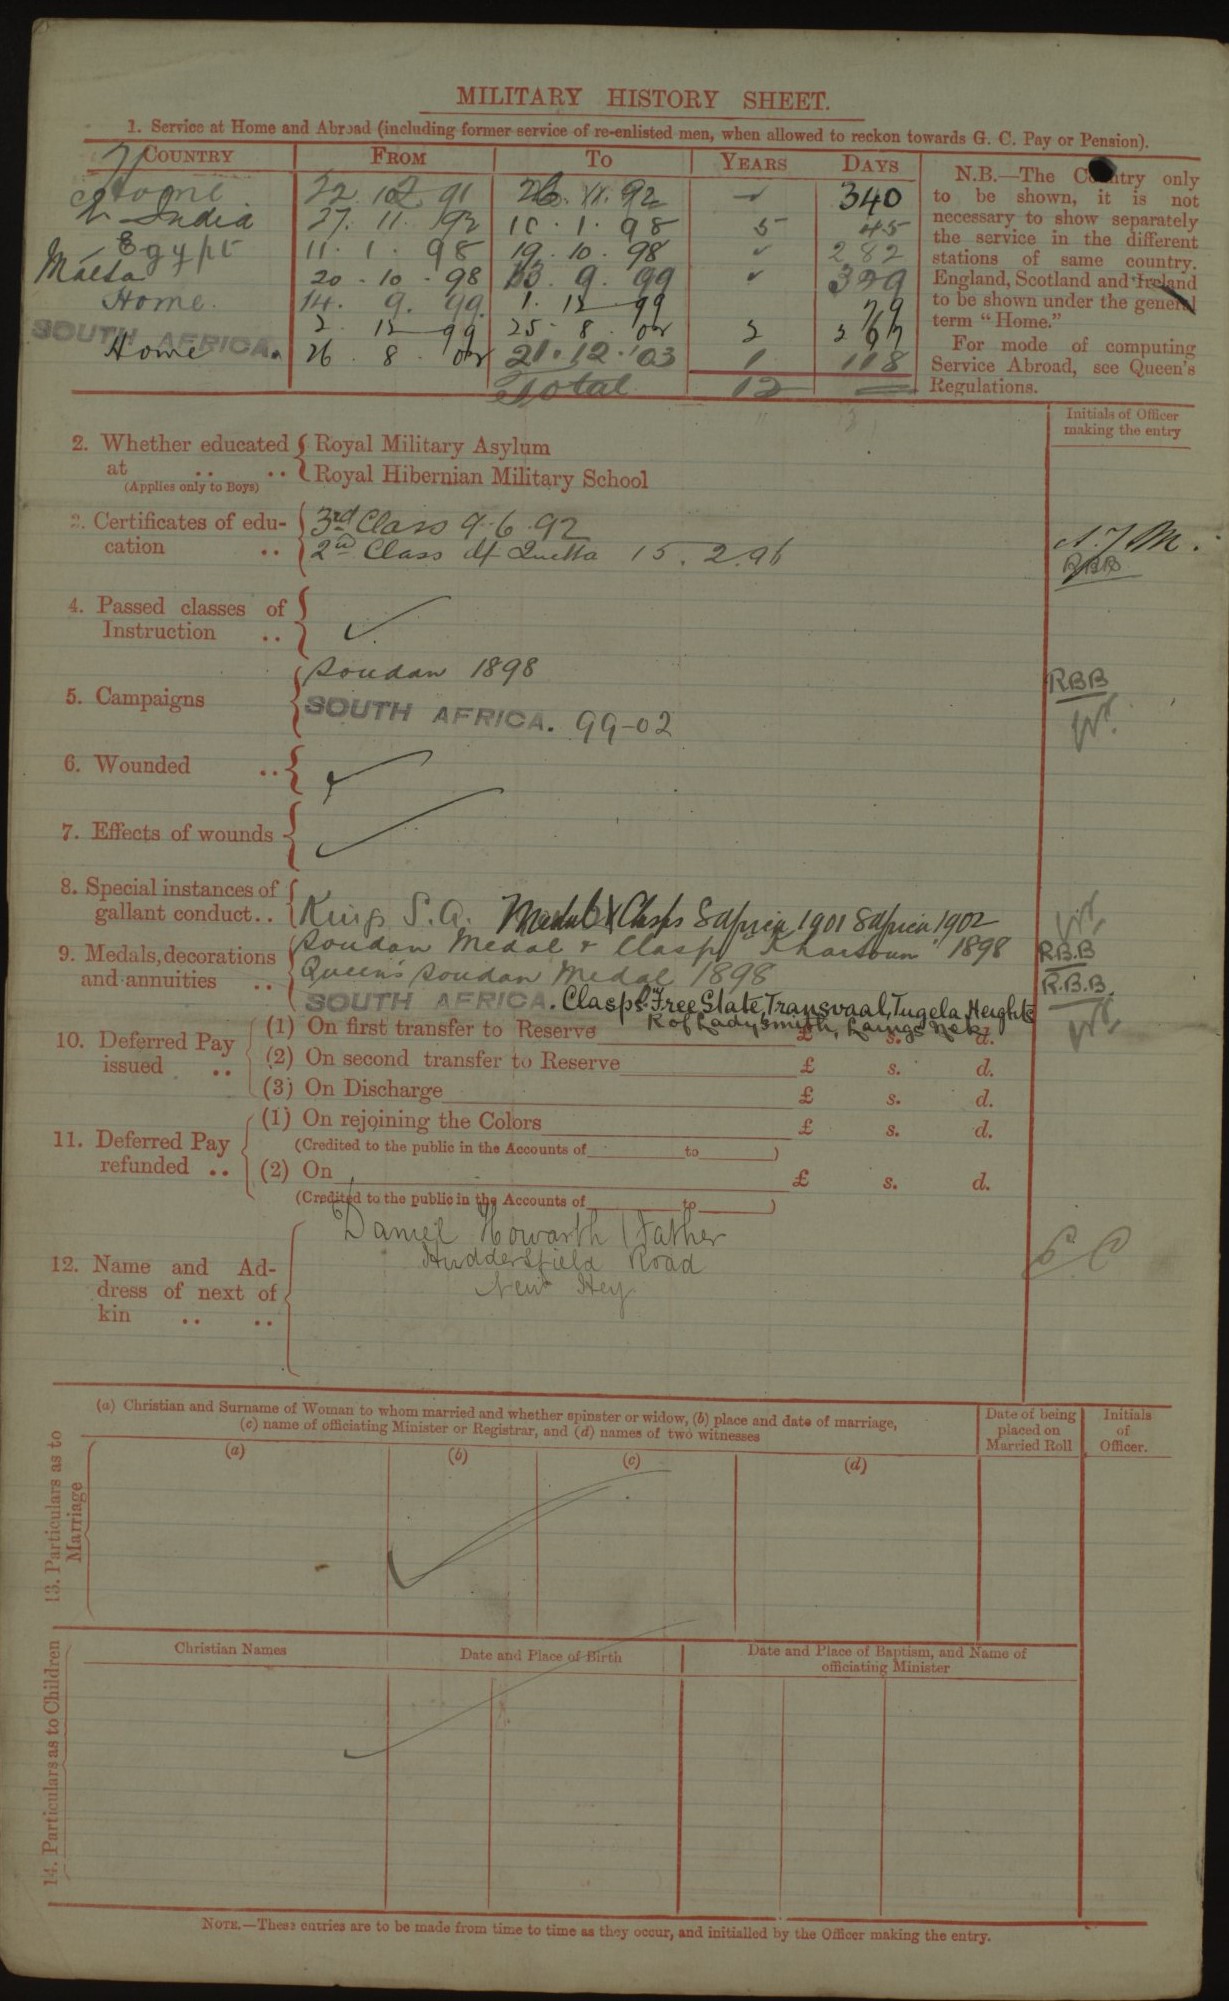 MILITARY HISTORY SHEET.
1. Service at Home and Abroad (including former service of re-enlisted men, when allowed to reckon towards G. C. Pay or Pension).
COUNTRY FROM TO YEARS DAYS
Home 22. 12. 91 26. 11. 92 340
India 27. 11. 92 10. 1. 98 5 45
Egypt 11. 1. 98 19. 10. 98 282
Malta 20. 10. 98 13. 9. 99 329
Home. 14. 9. 99. 1. 12 99 79
SOUTH AFRICA. 2. 12 99 25. 8. 02 2 267
Home 26. 8. 02 21. 12. 03 1 118
Total 12
N.B.—The Country only
to be shown, it is not
necessary to show separately
the service in the different
stations of same country.
England, Scotland and Ireland
to be shown under the general
term "Home."
For mode of computing
Service Abroad, see Queen's
Regulations.
Initials of Officer
making the entry
2. Whether educated Royal Military Asylum
at .. .. Royal Hibernian Military School
(Applies only to Boys)
3. Certificates of edu- 3rd Class 9. 6. 92
cation .. 2nd Class Quetta 15. 2. 96
RBB
4. Passed classes of
Instruction ..
5. Campaigns
Soudan 1898 RBB
SOUTH AFRICA. 99-02
6. Wounded ..
7. Effects of wounds
8. Special instances of
gallant conduct.. Kings S.A. Medal & Clasps S Africa 1901 S Africa 1902
9. Medals, decorations Soudan Medal & Clasp "Khartoum" 1898 R.B.B
and annuities .. Queen's Soudan Medal 1898 R.B.B.
SOUTH AFRICA. Clasps. Free State, Transvaal, Tugela Heights
R of Ladysmith, Laings Nek.
10. Deferred Pay issued .. (1) On first transfer to Reserve £ s. d.
(2) On second transfer to Reserve £ s. d.
(3) On Discharge £ s. d.
11. Deferred Pay refunded .. (1) On rejoining the Colors £ s. d.
(Credited to the public in the Accounts of to )
(2) On £ s. d.
(Credited to the public in the Accounts of to )
12. Name and Ad-
dress of next of
kin .. ..
Daniel Howarth (Father
Huddersfield Road
New Hey
13. Particulars as to Marriage
(a) Christian and Surname of Woman to whom married and whether spinster or widow, (b) place and date of marriage,
(c) name of officiating Minister or Registrar, and (d) names of two witnesses
Date of being
placed on
Married Roll
Initials
of
Officer.
(a) (b) (c) (d)
14. Particulars as to Children
Christian Names Date and Place of Birth Date and Place of Baptism, and Name of
officiating Minister
NOTE.—These entries are to be made from time to time as they occur, and initialled by the Officer making the entry.